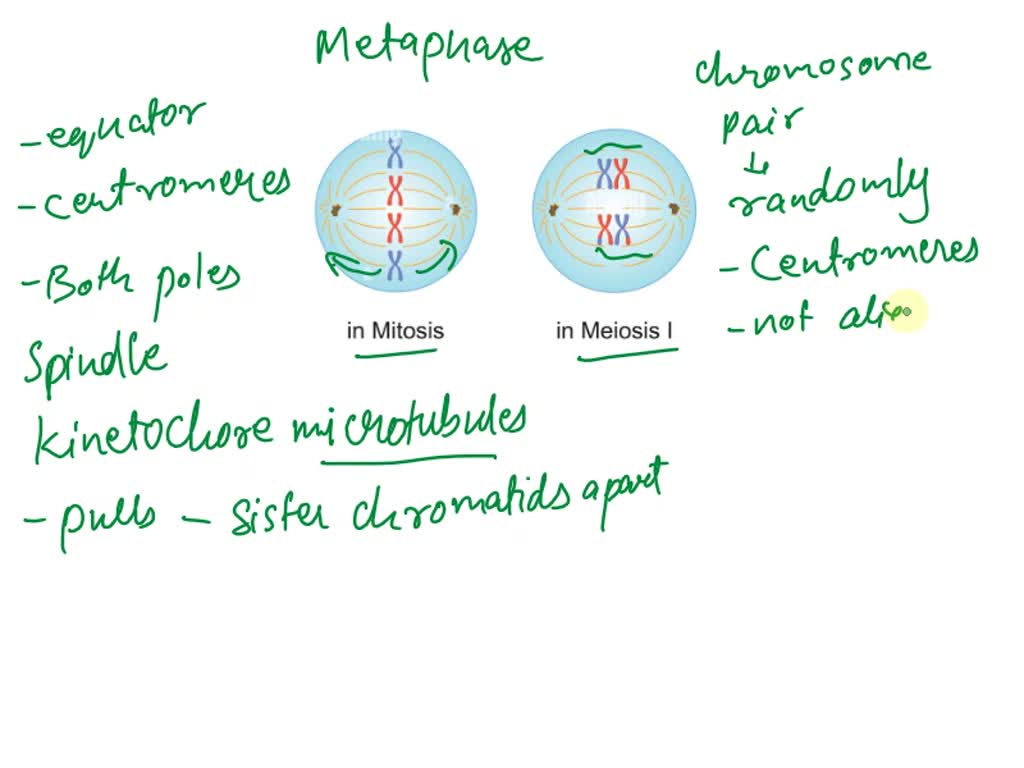 Metaphase
- equator
- centromeres
- Both poles
Spindle
Kinetochore microtubules
- pulls - sister chromatids apart
in Mitosis
in Meiosis I
chromosome
pair
↓
randomly
- Centromeres
- not